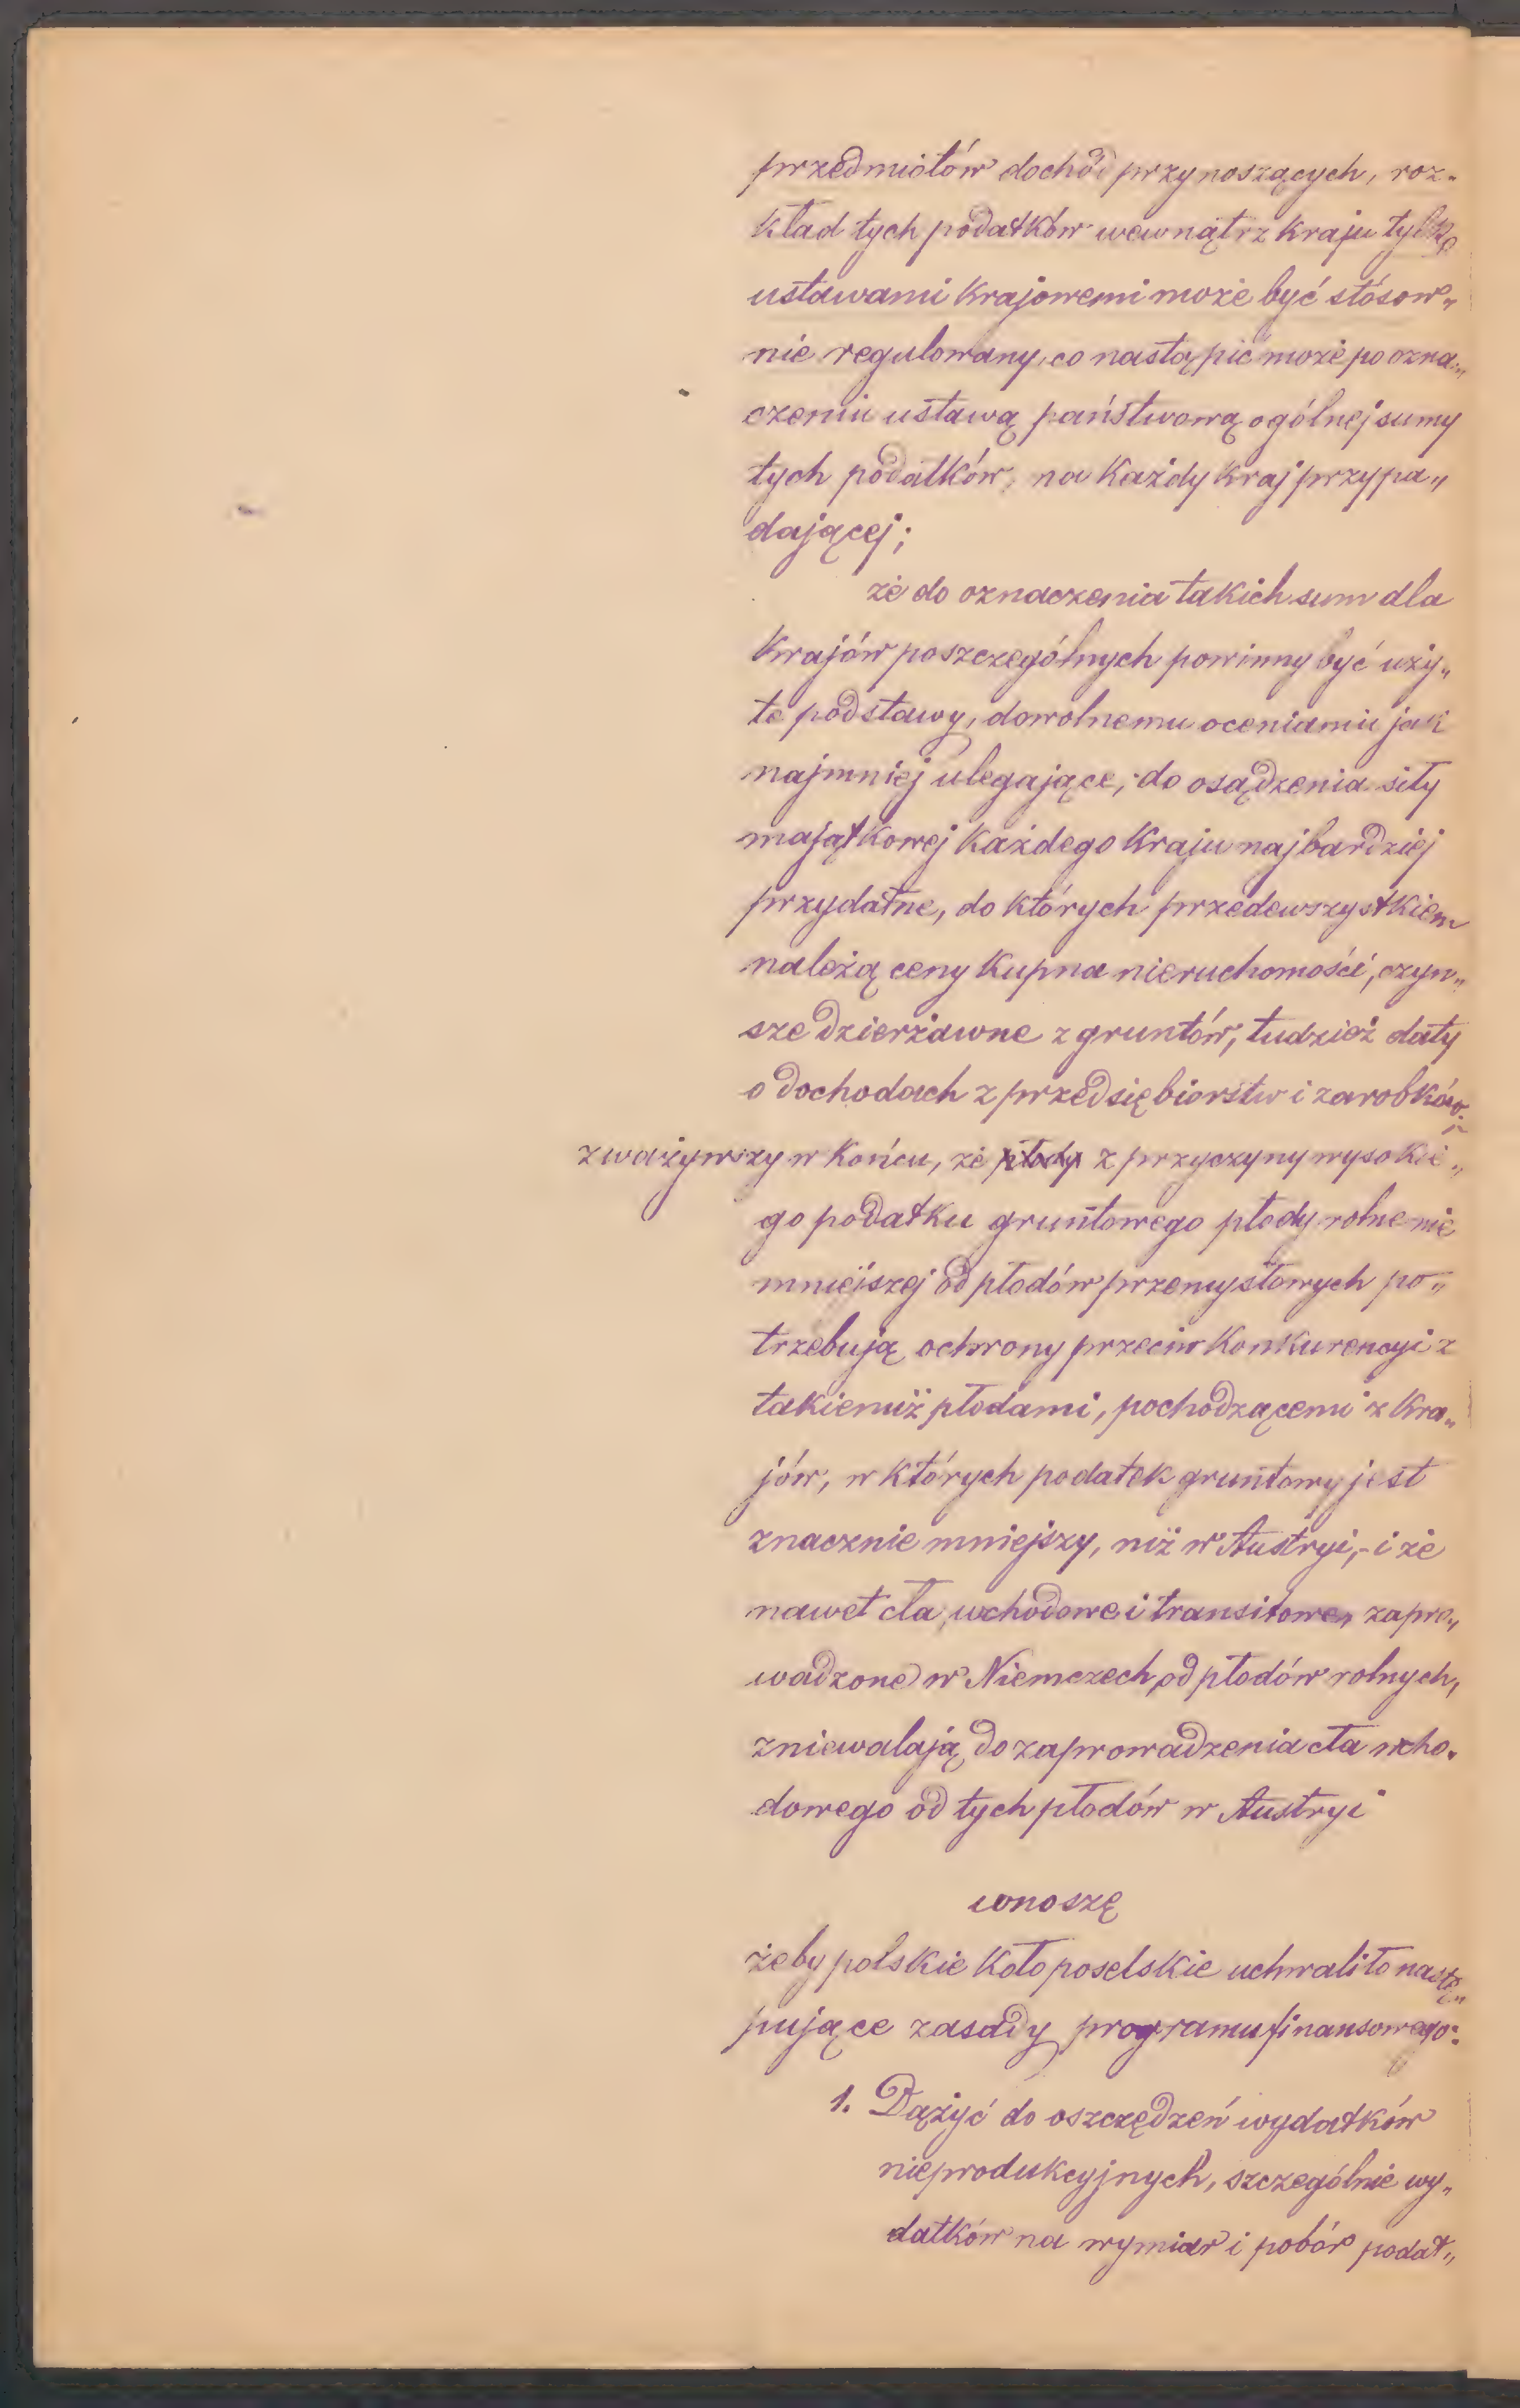 przedmiotów dochód przynoszących, roz-
kład tych podatków wewnątrz kraju tylko
ustawami krajowemi może być stósow„
nie regulowany, co nastąpić może po ozna„
czeniu ustawą państwową ogólnej sumy
tych podatków, na każdy kraj przypa„
dającej;
że do oznaczenia takich sum dla
krajów poszczególnych powinny być uży„
te podstawy, dowolnemu ocenianiu jak
najmniej ulegające, do osądzenia siły
majątkowej każdego kraju najbardziej
przydatne, do których przedewszystkiem
należą ceny kupna nieruchomości, czyn„
sze dzierżawne z gruntów, tudzież daty
o dochodach z przedsiębiorstw i zarobków;
zważywszy w końcu, że płody z przyczyny wysokie„
go podatku gruntowego płody rolne nie
mniejszej od płodów przemysłowych po„
trzebują ochrony przeciw konkurencyi z
takiemiż płodami, pochodzącemi z kra„
jów, w których podatek gruntowy jest
znacznie mniejszy, niż w Austryi, - i że
nawet cła, wchodowe i transitowe, zapro„
wadzone w Niemczech od płodów rolnych,
zniewalają do zaprowadzenia cła wcho-
dowego od tych płodów w Austryi
wnoszę
żeby polskie koło poselskie uchwaliło nastę„
pujące zasady programu finansowego:
1. Dążyć do oszczędzeń wydatków
nieprodukcyjnych, szczególnie wy„
datków na wymiar i pobór podat„